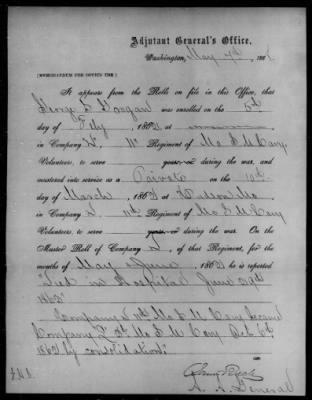 Adjutant General's Office,
Washington, May 7th, 186
[MEMORANDUM FOR OFFICE USE.]
It appears from the Rolls on file in this Office, that
George was enrolled on the
day of Feby, 1863, at
in Company L, 11" Regiment of Mo S M Cavy
Volunteers, to serve years, or during the war, and
mustered into service as a Private on the 10th
day of March, 1863, at Hudson Mo,
in Company L, 11th Regiment of Mo S M Cavy
Volunteers, to serve years, or during the war. On the
Muster Roll of Company L, of that Regiment, for the
months of May & June, 1863, he is reported
"Died in Hospital June 29th
1863"
Company 11th Mo S M Cavy became
Company L 2d Mo S M Cavy Oct 6th
1863 by consolidation.
A. A. General